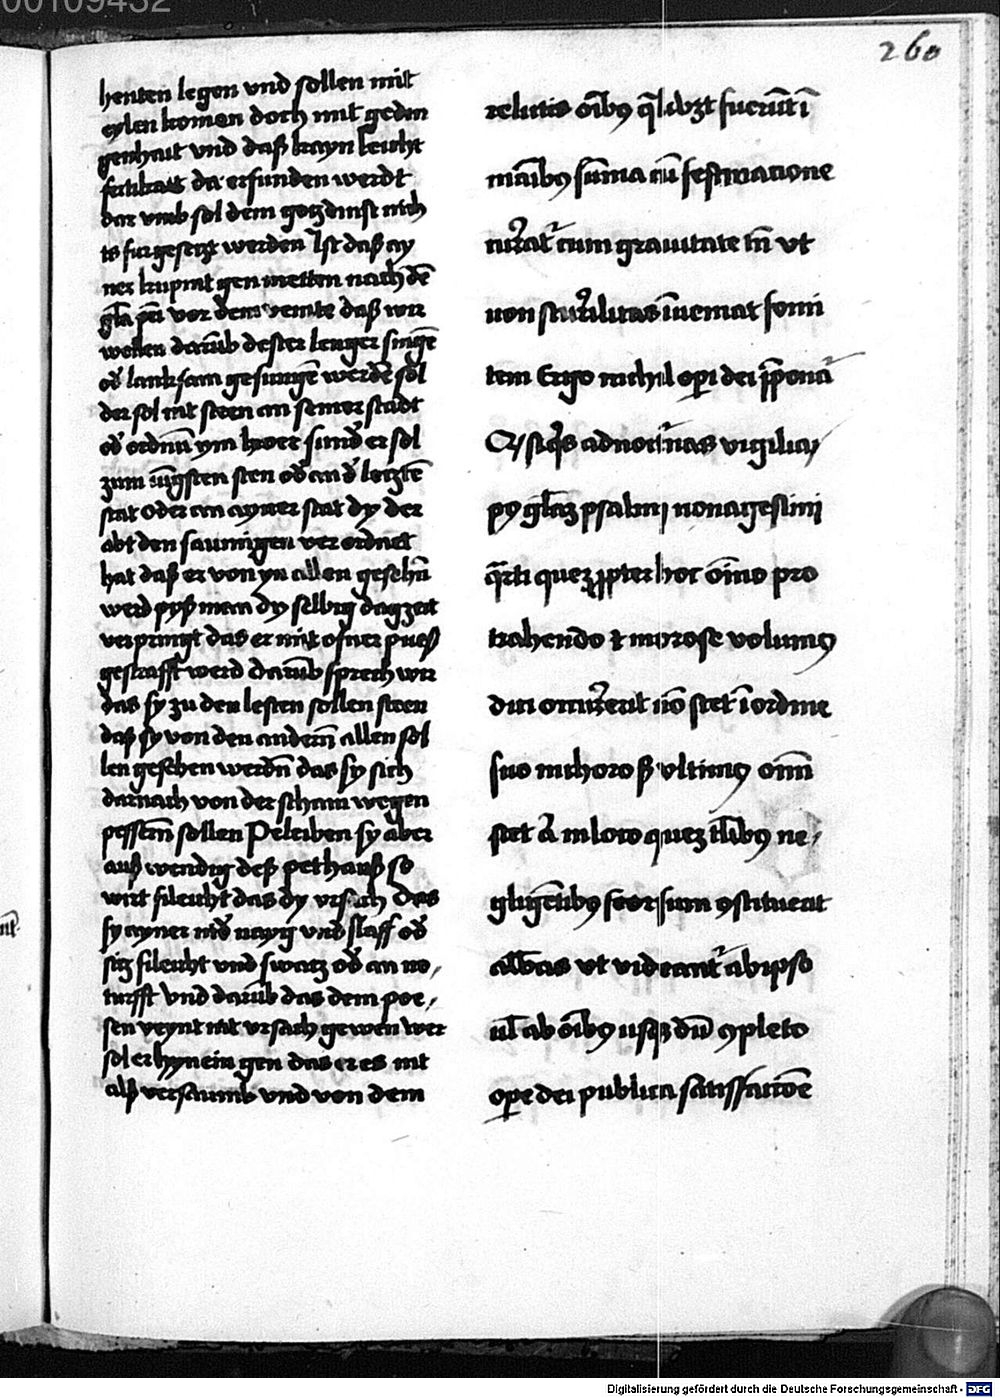 00109432
260
henten legen vnd sollen mit
eylen komen doch mit gediu
genhait vnd daß kayn leicht
fertikait da erfunden werdt
dar vmb sol dem gotzdinst nich
ts furgesetzt werden Ist daß ay
ner kupmt gen metten nach dē
gl̄a p̄ri vor dem venite daß wir
wollen darūb dester lenger singē
od̄ lanksam gesungē werdē sol
der sol nit steen an seiner stadt
od̄ ordnū ym koer sund̄ er sol
zum iūgsten sten od̄ an d̄ letztē
stat oder an ayner stat dy der
abt den saumigen ver ordnet
hat daß er von yn allen gesehn̄
werd pyß man dy selbig dagzeit
verpringt das er mit ofner pueß
gestrafft werd darūb sprech wir
das sy zu den lesten sollen steen
daß sy von den andern̄ allen sol
len gesehen werdn̄ das sy sich
darnach von der scham wegen
pessern̄ sollen Peleiben sy aber
auß wendig deß pethauß so
wirt fileicht das dy vrsach das
sy ayner nid̄ nayg vnd slaff od̄
sitz fileicht vnd swatz od̄ an no,
turfft vnd darūb das dem poe,
sen veynt nit vrsach gewen wer
sol er hynein gen das er es nit
alß versaumb vnd von dem
relictis oīb9 q̄libzt fuerūt ī
manib9 sūma cū festinacione
curratr̄ cum grauitate tn̄ vt
non scurrilitas īueniat fomi
tem Ergo nichil operi dei p̄ponar̄
Q siq̄s ad nocturnas vigilias
p9 gl̄am psalmi nonagesimi
q̄rti quez ꝓpter hoc oīno pro
trahendo & morose volum9
dici occurrerit nō stet ī ordine
suo in choro s3 vltim9 om̄
stet aūt in loco quez talib9 ne,
gligētib9 seorsum 9stituerit
abbas vt videantr̄ ab ipso
ul̄ ab oīb9 usq3 dū 9pleto
ope dei publica satisfactōe
Digitalisierung gefördert durch die Deutsche Forschungsgemeinschaft - DFG